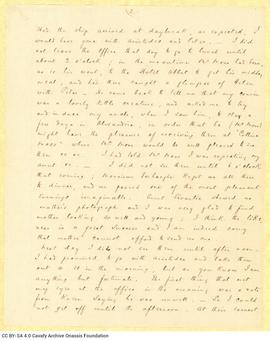 2.
Had the ship arrived at daybreak, as expected, I
would have gone with Aristides and Peter, — I did
not leave the office that day to go to lunch until
about 2 o'clock; in the meantime Mr Moss had been,
as is his wont, to the Hotel Abbat to get his midday
meal, and had there caught a glimpse of Helen
with Peter — He came back to tell me that my cousin
was a lovely little creature, and asked me to try
and induce my aunt, when I saw him, to stay a
few days in Alexandria, in order that he (Mr Moss)
might have the pleasure of receiving them at
where Mr Moss would be well pleased to see
them so — I had told Mr Moss I was expecting my
aunt so — I did not see them until 6 o'clock
that evening; Monsieur kept us all there
to dinner, and we passed one of the most pleasant
evenings imaginable. Aunt showed us
mother's photograph and I was very glad to find
mother looking so well and young; I think the like-
ness is a great success and I am indeed sorry
that mother cannot afford to send us one
Next day I did not see them until after noon.
I had promised to go with Aristides and take them
out at 11 in the morning, but as you know I am
anything but fortunate. The first thing that met
my eyes at the office in the morning was a note
from saying he was unwell. — So I could
not get off until the afternoon. At their earnest
CC BY-SA 4.0 Cavafy Archive Onassis Foundation